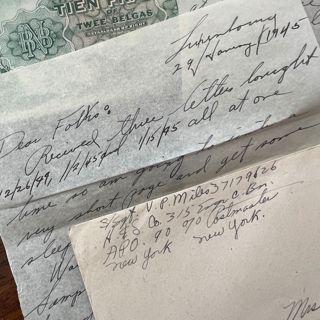 TIEN
TWEE BELGAS
Luxembourg
29 January/1945
Dear Folks:
Received three letters tonight
12/26/44, 1/2/45 and 1/15/45 all at one
time so am going
very short page and get some
S/Sgt. V. P. Miles 37179826
H & S Co. 315 Engr. C. Bn.
APO. 90 c/o Postmaster
New York New York.
Mrs